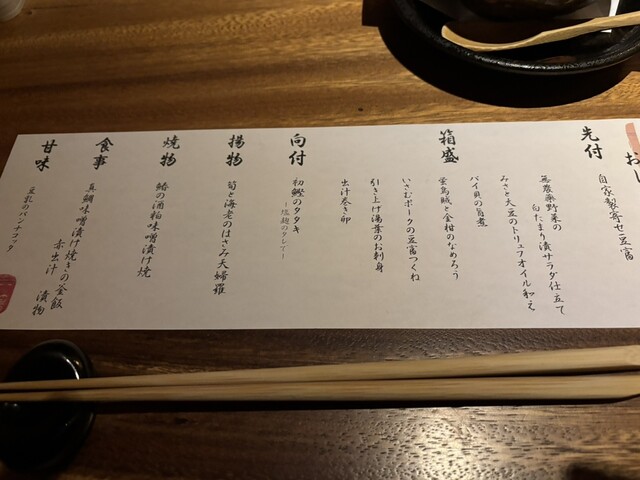 お
先付
自家製寄せ豆富
箱盛
無農薬野菜の
白たまり漬サラダ仕立て
みさと大豆のトリュフオイル和え
バイ貝の旨煮
蛍烏賊と金柑のなめろう
いさむポークの豆富つくね
引き上げ湯葉のお刺身
出汁巻き卵
向付
初鰹のタタキ
～塩麹のタレで～
揚物
筍と海老のはさみ天婦羅
焼物
鰆の酒粕味噌漬け焼
食事
真鯛味噌漬け焼きの釜飯
赤出汁 漬物
甘味
豆乳のパンナコッタ